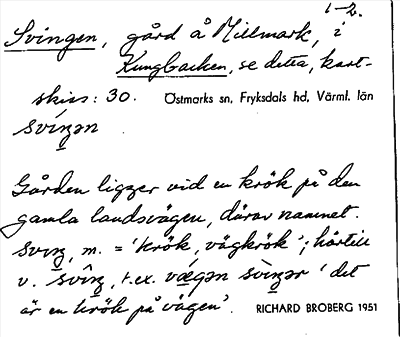 1-2.
Svingen, gård å Millmark, i
Kungbacken, se detta, kart-
skiss: 30. Östmarks sn, Fryksdals hd, Värml. län
svíŋən
Gården ligger vid en krök på den
gamla landsvägen, därav namnet.
sviŋ, m. = 'krök, vägkrök'; härtill
v. svîŋ, t.ex. vægən svìŋər 'det
är en krök på vägen'. RICHARD BROBERG 1951